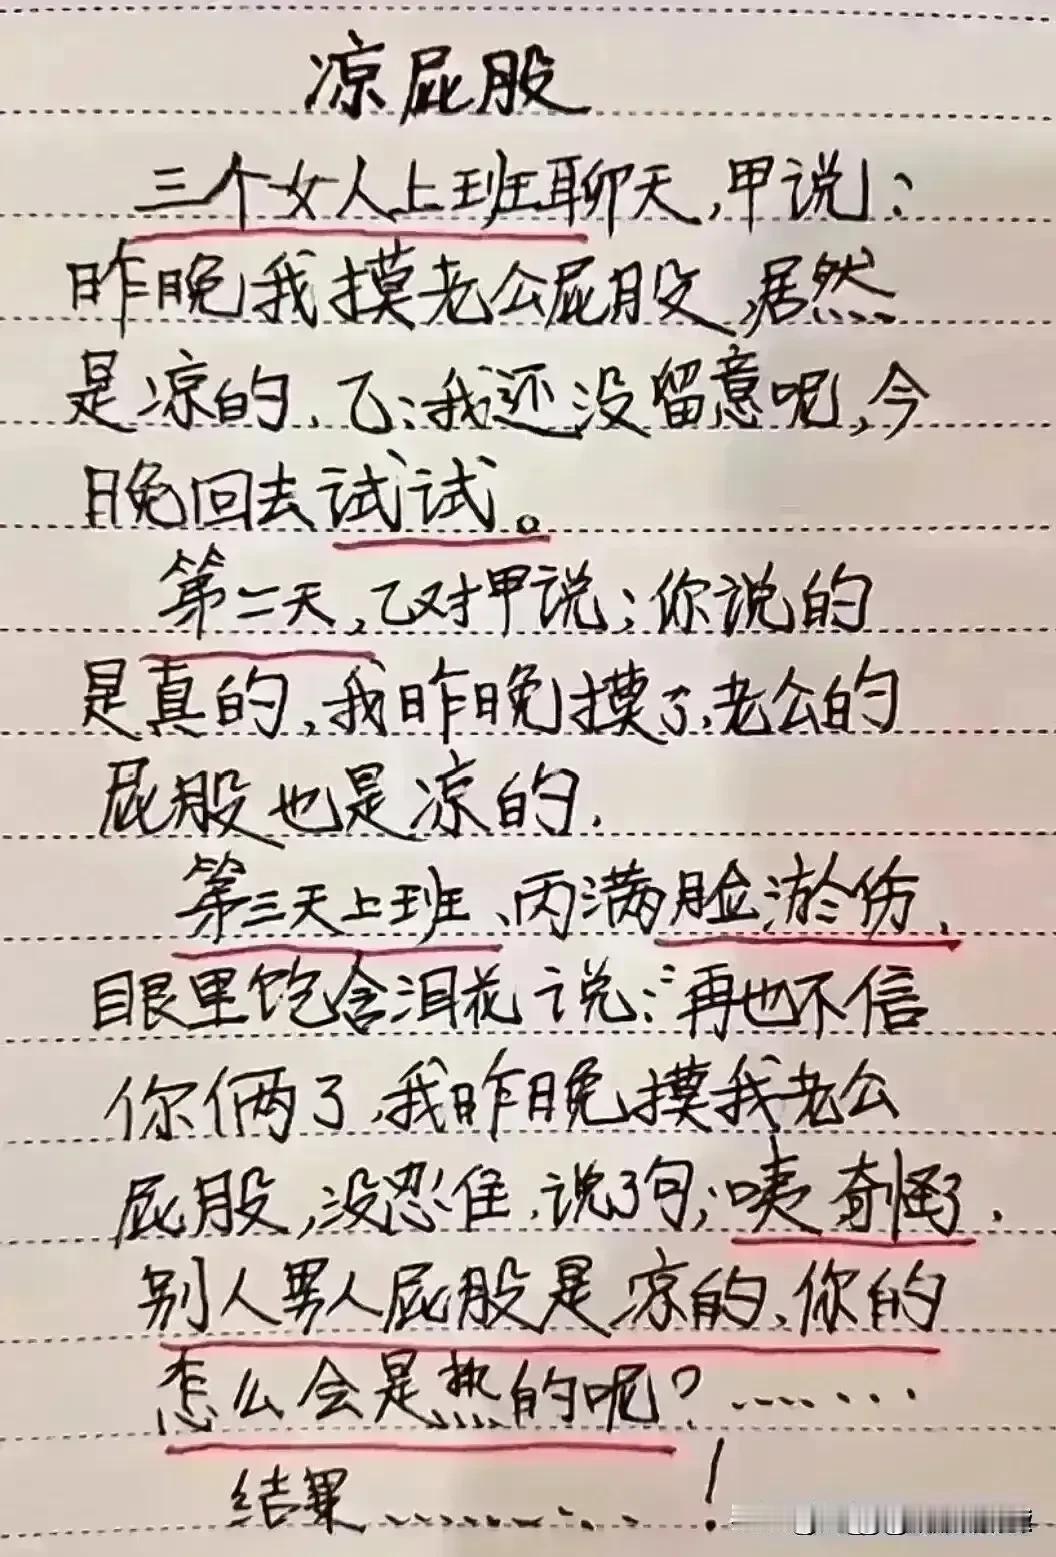 凉屁股
三个女人上班聊天,甲说:
昨晚我摸老公屁股,居然
是凉的,乙:我还没留意呢,今
晚回去试试。
第二天,乙对甲说:你说的
是真的,我昨晚摸了,老公的
屁股也是凉的.
第三天上班、丙满脸淤伤,
眼里饱含泪花说:再也不信
你俩了,我昨晚摸我老公
屁股,没忍住,说了句;咦奇怪了,
别人男人屁股是凉的、你的
怎么会是热的呢?........
结果...........!